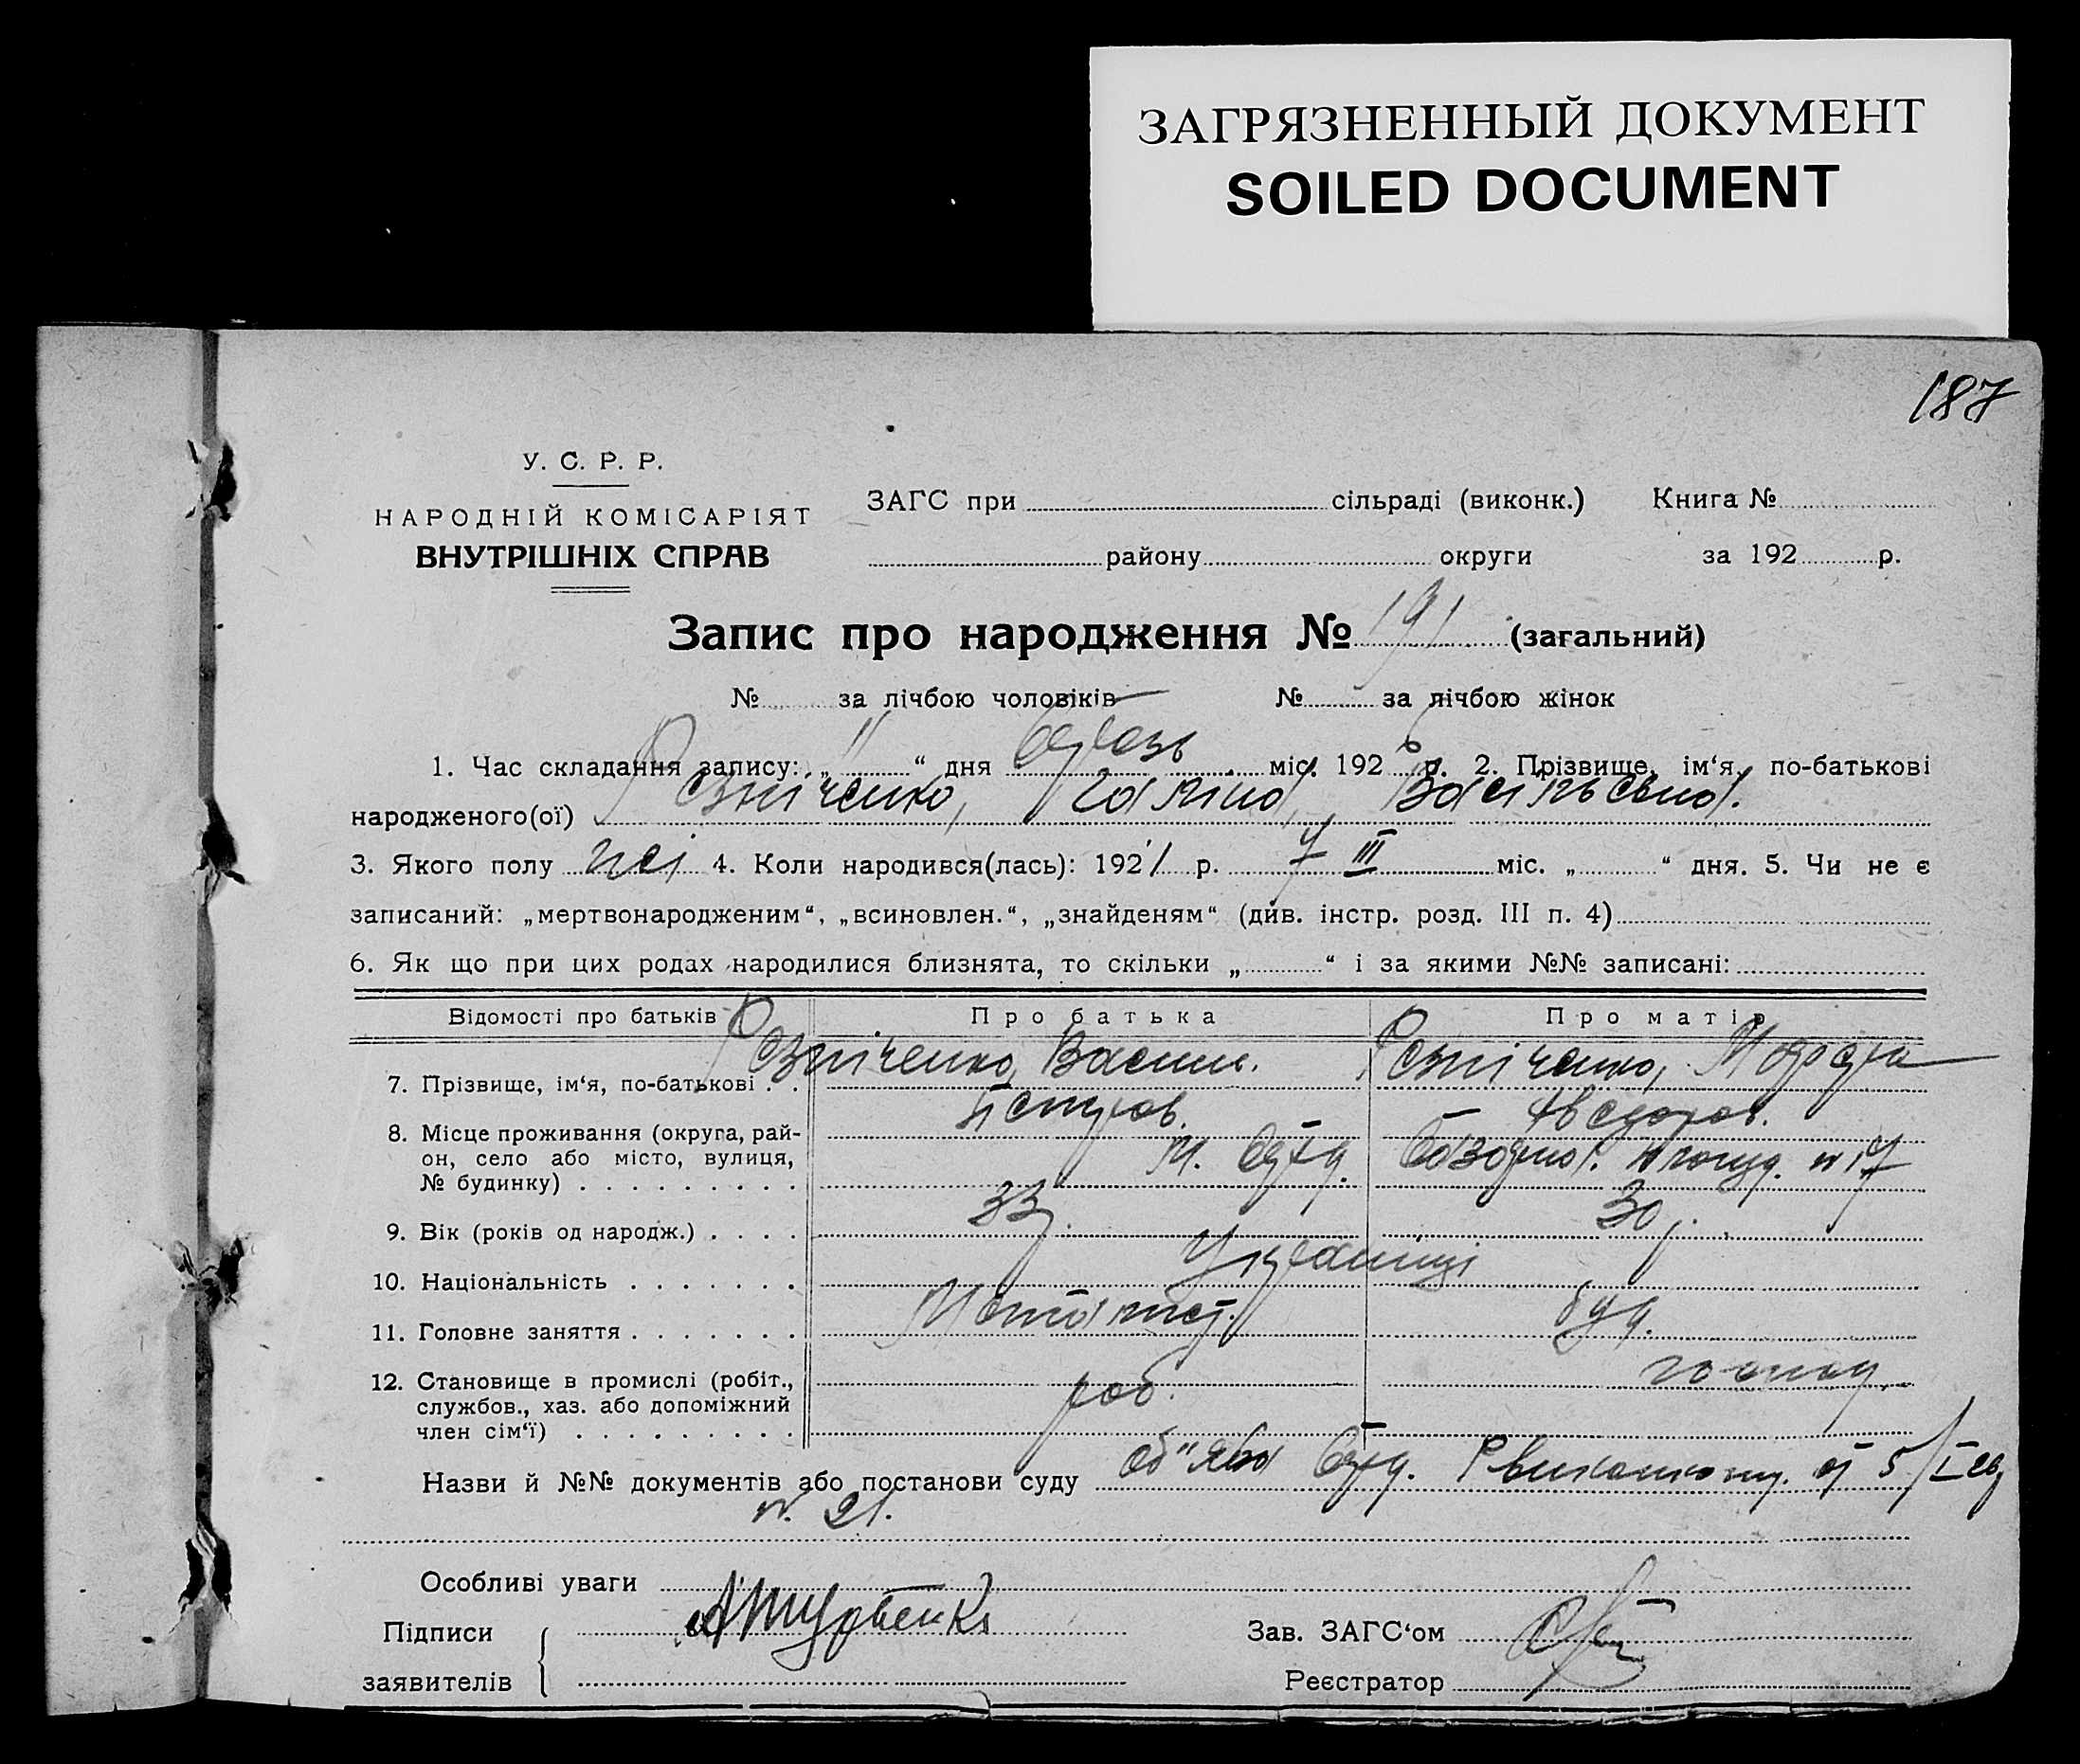 ЗАГРЯЗНЕННЫЙ ДОКУМЕНТ
SOILED DOCUMENT
187
У. С. Р. Р.
НАРОДНІЙ КОМІСАРІЯТ
ВНУТРІШНІХ СПРАВ
ЗАГС при сільраді (виконк.) Книга №
району округи за 192 р.
Запис про народження № 191 (загальний)
№ за лічбою чоловіків № за лічбою жінок
1. Час складання запису: „ 11 “ дня міс. 192 6 р. 2. Прізвище, ім‘я, по-батькові
народженого(ої) Резніченко, Галіна, Васільевна.
3. Якого полу жі 4. Коли народився(лась): 1921 р. 7 III міс. „ “ дня. 5. Чи не є
записаний: „мертвонародженим“, „всиновлен.“, „знайденям“ (див. інстр. розд. III п. 4)
6. Як що при цих родах народилися близнята, то скільки „ “ і за якими №№ записані:
Відомості про батьків Про батька Про матір
7. Прізвище, ім‘я, по-батькові . . Резніченко, Васил. Петров. Резніченко, Мотря Федоров.
8. Місце проживання (округа, район, село або місто, вулиця, № будинку) . . . . . . . . . м. № 17
9. Вік (років од народж.) . . . . 33 р. 30 р.
10. Національність . . . . . . . Українці
11. Головне заняття . . . . . . . Металіст.
12. Становище в промислі (робіт., службов., хаз. або допоміжний член сім‘ї) . . . . . . . . . роб.
Назви й №№ документів або постанови суду об"ява Рвиконкому. від 5/I
№. 21.
Особливі уваги
Підписи
заявителів
Зав. ЗАГС‘ом
Реєстратор